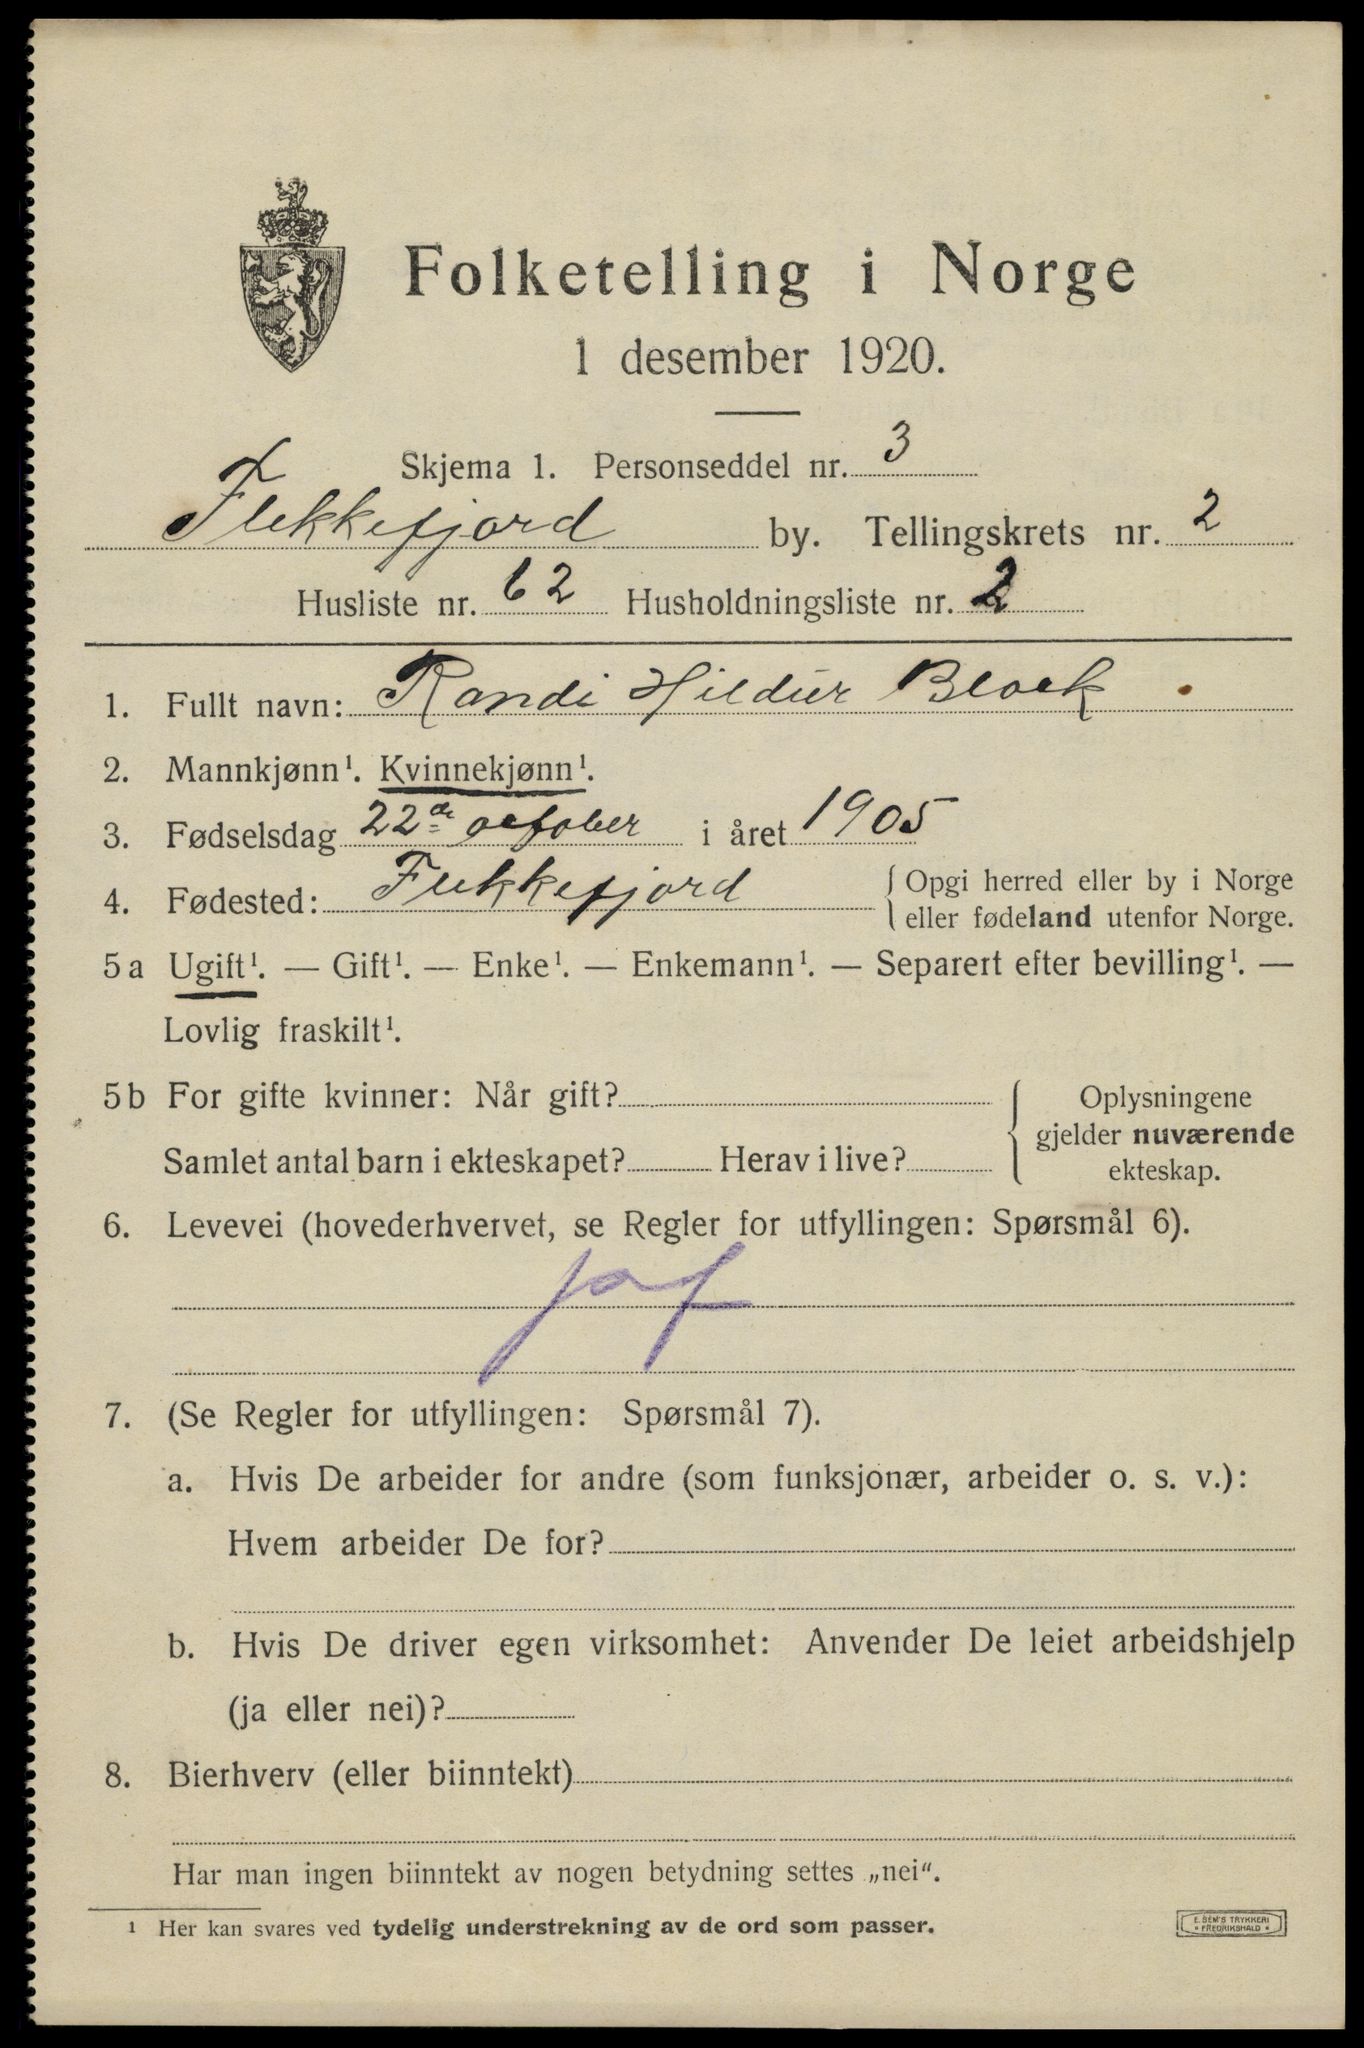 Folketelling i Norge
1 desember 1920.
Skjema 1. Personseddel nr. 3
Flekkefjord by. Tellingskrets nr. 2
Husliste nr. 62 Husholdningsliste nr. 2
1. Fullt navn: Randi Hildur Block
2. Mannkjønn¹. Kvinnekjønn¹.
3. Fødselsdag 22de october i året 1905
4. Fødested: Flekkefjord { Opgi herred eller by i Norge
eller fødeland utenfor Norge.
5a Ugift¹. — Gift¹. — Enke¹. — Enkemann¹. — Separert efter bevilling¹. —
Lovlig fraskilt¹.
5b For gifte kvinner: Når gift?
Samlet antal barn i ekteskapet? Herav i live?
Oplysningene
gjelder nuværende
ekteskap.
6. Levevei (hovederhvervet, se Regler for utfyllingen: Spørsmål 6).
7. (Se Regler for utfyllingen: Spørsmål 7).
a. Hvis De arbeider for andre (som funksjonær, arbeider o. s. v.):
Hvem arbeider De for?
b. Hvis De driver egen virksomhet: Anvender De leiet arbeidshjelp
(ja eller nei)?
8. Bierhverv (eller biinntekt)
Har man ingen biinntekt av nogen betydning settes „nei“.
¹ Her kan svares ved tydelig understrekning av de ord som passer.
E. SEM'S TRYKKERI
FREDRIKSHALD